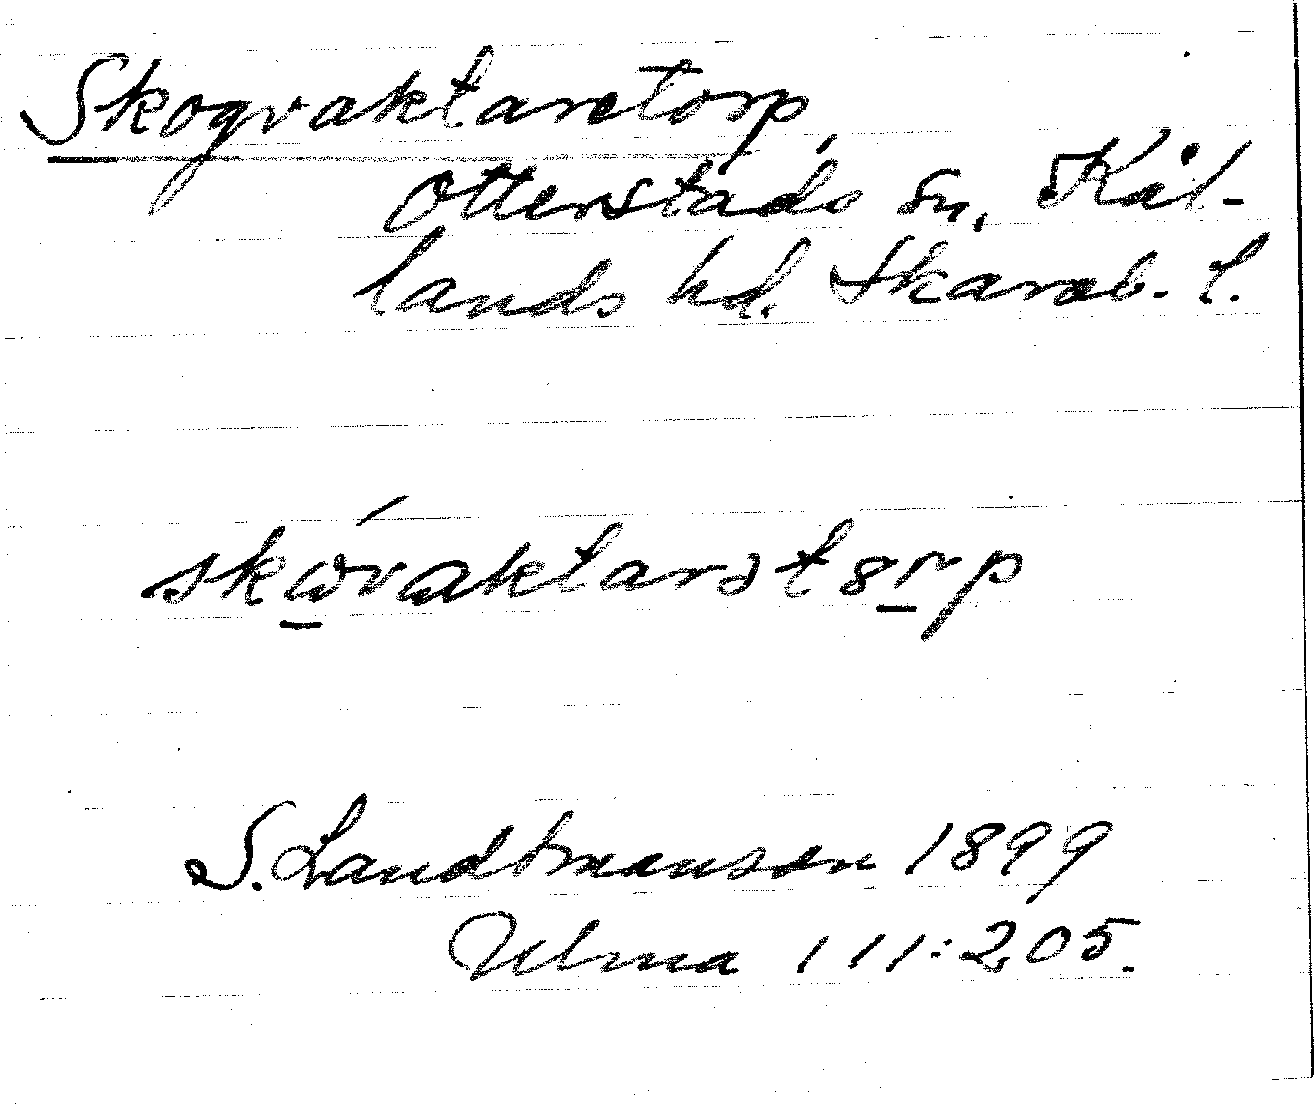 Skogvaktaretorp,
Otterstads sn, Kål-
lands hd. Skarab. l.
skωvaktarətȣrp
S. Landtmanson 1899
Ulma 111:205.